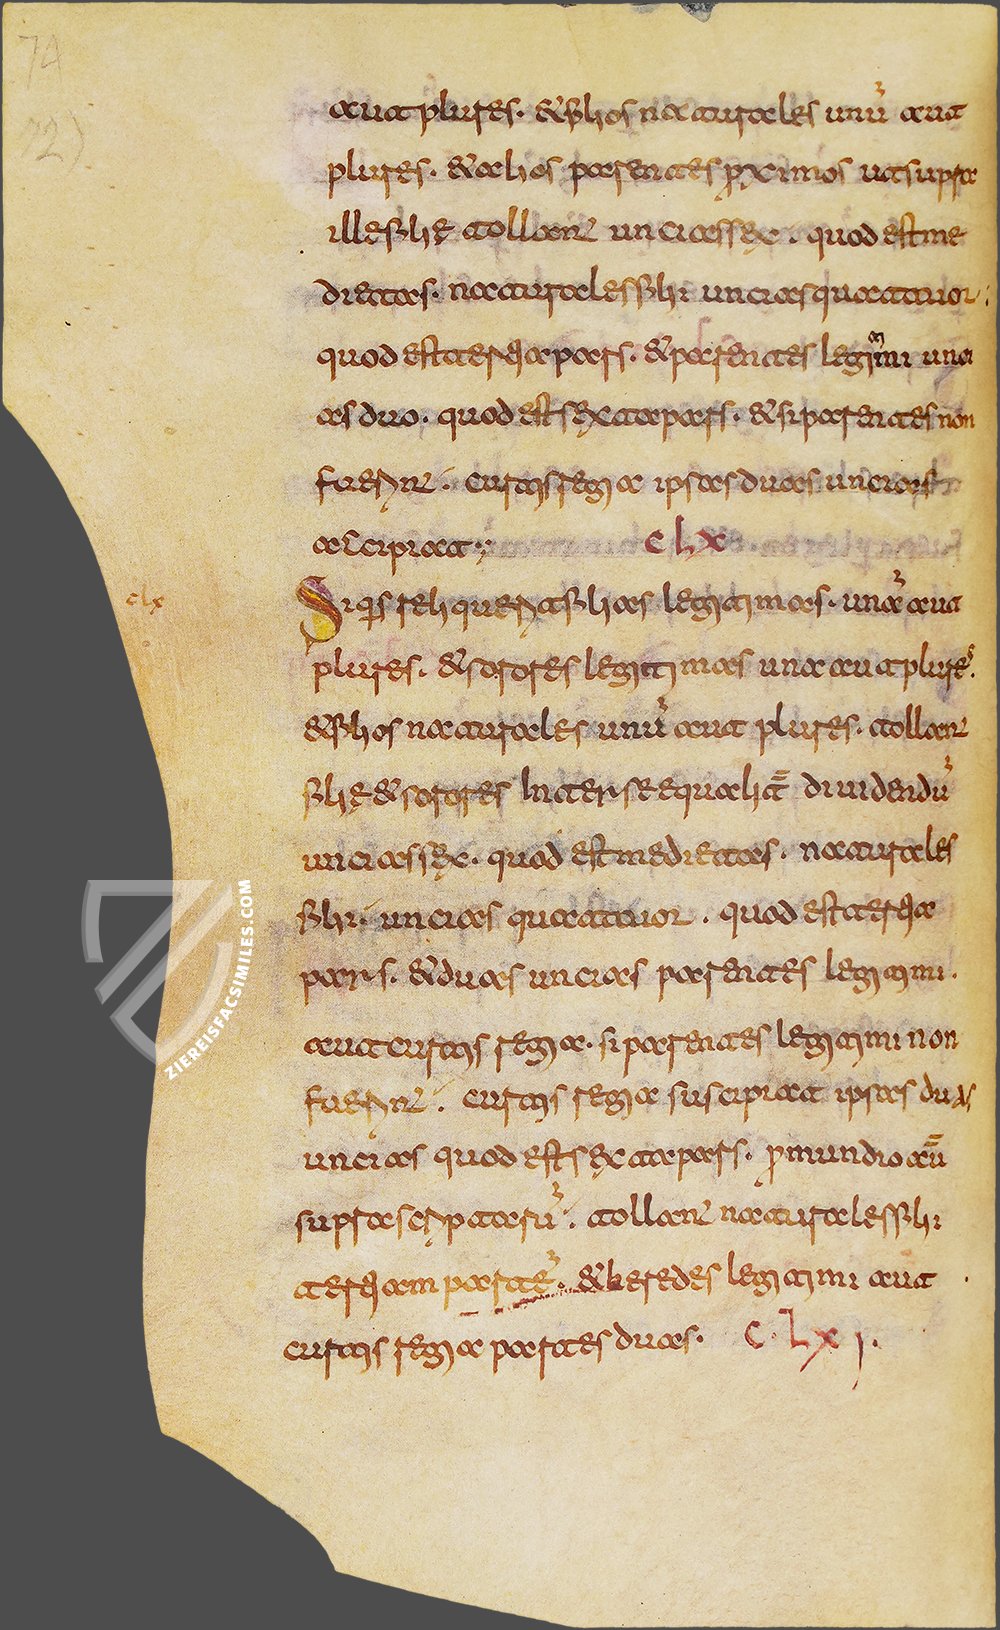 74
72)
aut plures. & filios naturales unu aut
plures. & alios parentes pximos ut supra
ille filie tollant uncias sex. quod est me
dietas. naturales filii uncias quattuor.
quod est tertia pars. & parentes legitimi unci
as duo. quod est sexta pars. & si parentes non
fuerint. curtis regia ipsas duas uncias
accipiat. CLX
clx
Si qis reliquerit filias legitimas. una aut
plures. & sorores legitimas una aut plures.
& filios naturales unu aut plures. tollant
filie & sorores inter se equalit diuidendu
uncias sex. quod est medietas. naturales
filii. uncias quattuor. quod est tertia
pars. & duas uncias parentes legitimi.
aut curtis regia. si parentes legitimi non
fuerint. curtis regia suscipiat ipsas duas
uncias quod est sexta pars. p mundio au
suprascriptaru. tollant naturales filii
tertiam parte. & heredes legitimi aut
curtis regia partes duas. C.LXI.
ZIEREISFACSIMILES.COM